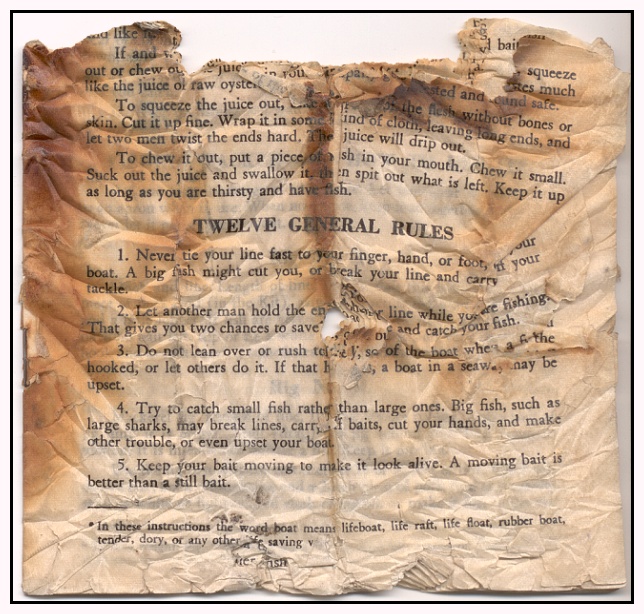 like
bait
If and
out or chew juice squeeze
like the juice of raw oyster. much
To squeeze the juice out, the flesh without bones or
skin. Cut it up fine. Wrap it in some kind of cloth, leaving long ends, and
let two men twist the ends hard. The juice will drip out.
To chew it out, put a piece of fish in your mouth. Chew it small.
Suck out the juice and swallow it, then spit out what is left. Keep it up
as long as you are thirsty and have fish.
TWELVE GENERAL RULES
1. Never tie your line fast to your finger, hand, or foot, your
boat. A big fish might cut you, or break your line and carry your
tackle.
2. Let another man hold the en line while you are fishing.
That gives you two chances to save and catch your fish.
3. Do not lean over or rush to of the boat when a the
hooked, or let others do it. If that , a boat in a seaw may be
upset.
4. Try to catch small fish rather than large ones. Big fish, such as
large sharks, may break lines, carry off baits, cut your hands, and make
other trouble, or even upset your boat.
5. Keep your bait moving to make it look alive. A moving bait is
better than a still bait.
* In these instructions the word boat means lifeboat, life raft, life float, rubber boat,
tender, dory, or any other saving
fish